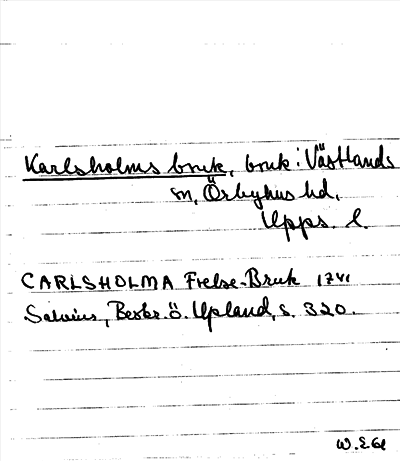 Karlsholms bruk, bruk i Västlands
sn, Örbyhus hd,
Upps. l.
CARLSHOLMA Frelse-Bruk 1741
Salvius, Beskr. ö. Upland, s. 320.